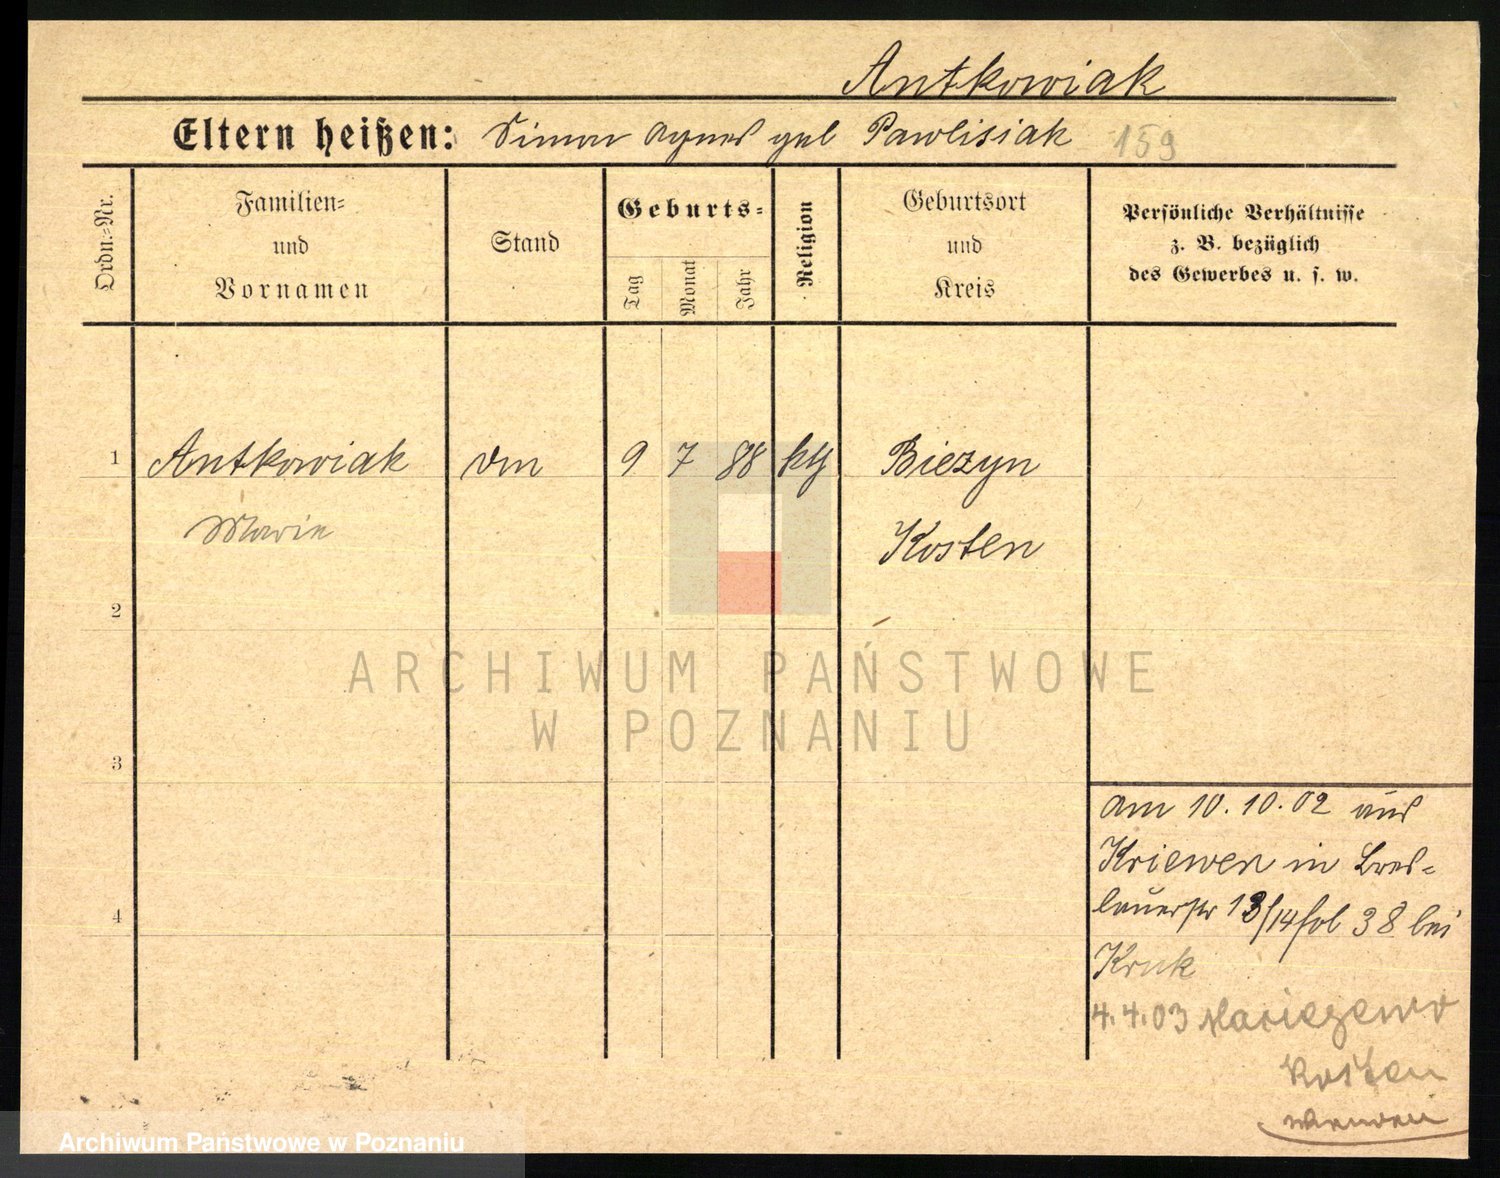 Antkowiak
Eltern heißen: Simon Agnes geb Pawlisiak 159
Ordn.-Nr.
Familien-
und
Vornamen
Stand
Geburts-
Tag
Monat
Jahr
Religion
Geburtsort
und
Kreis
Persönliche Verhältnisse
z. B. bezüglich
des Gewerbes u. s. w.
1 Antkowiak 9 7 88 kth Biezyn
Marie Kosten
2
3
4
am 10.10.02 aus
Kriewen in Bres-
lauerstr 13/14 fol 38 bei
Kruk
4.4.03
Kosten
ARCHIWUM PAŃSTWOWE
W POZNANIU
Archiwum Państwowe w Poznaniu